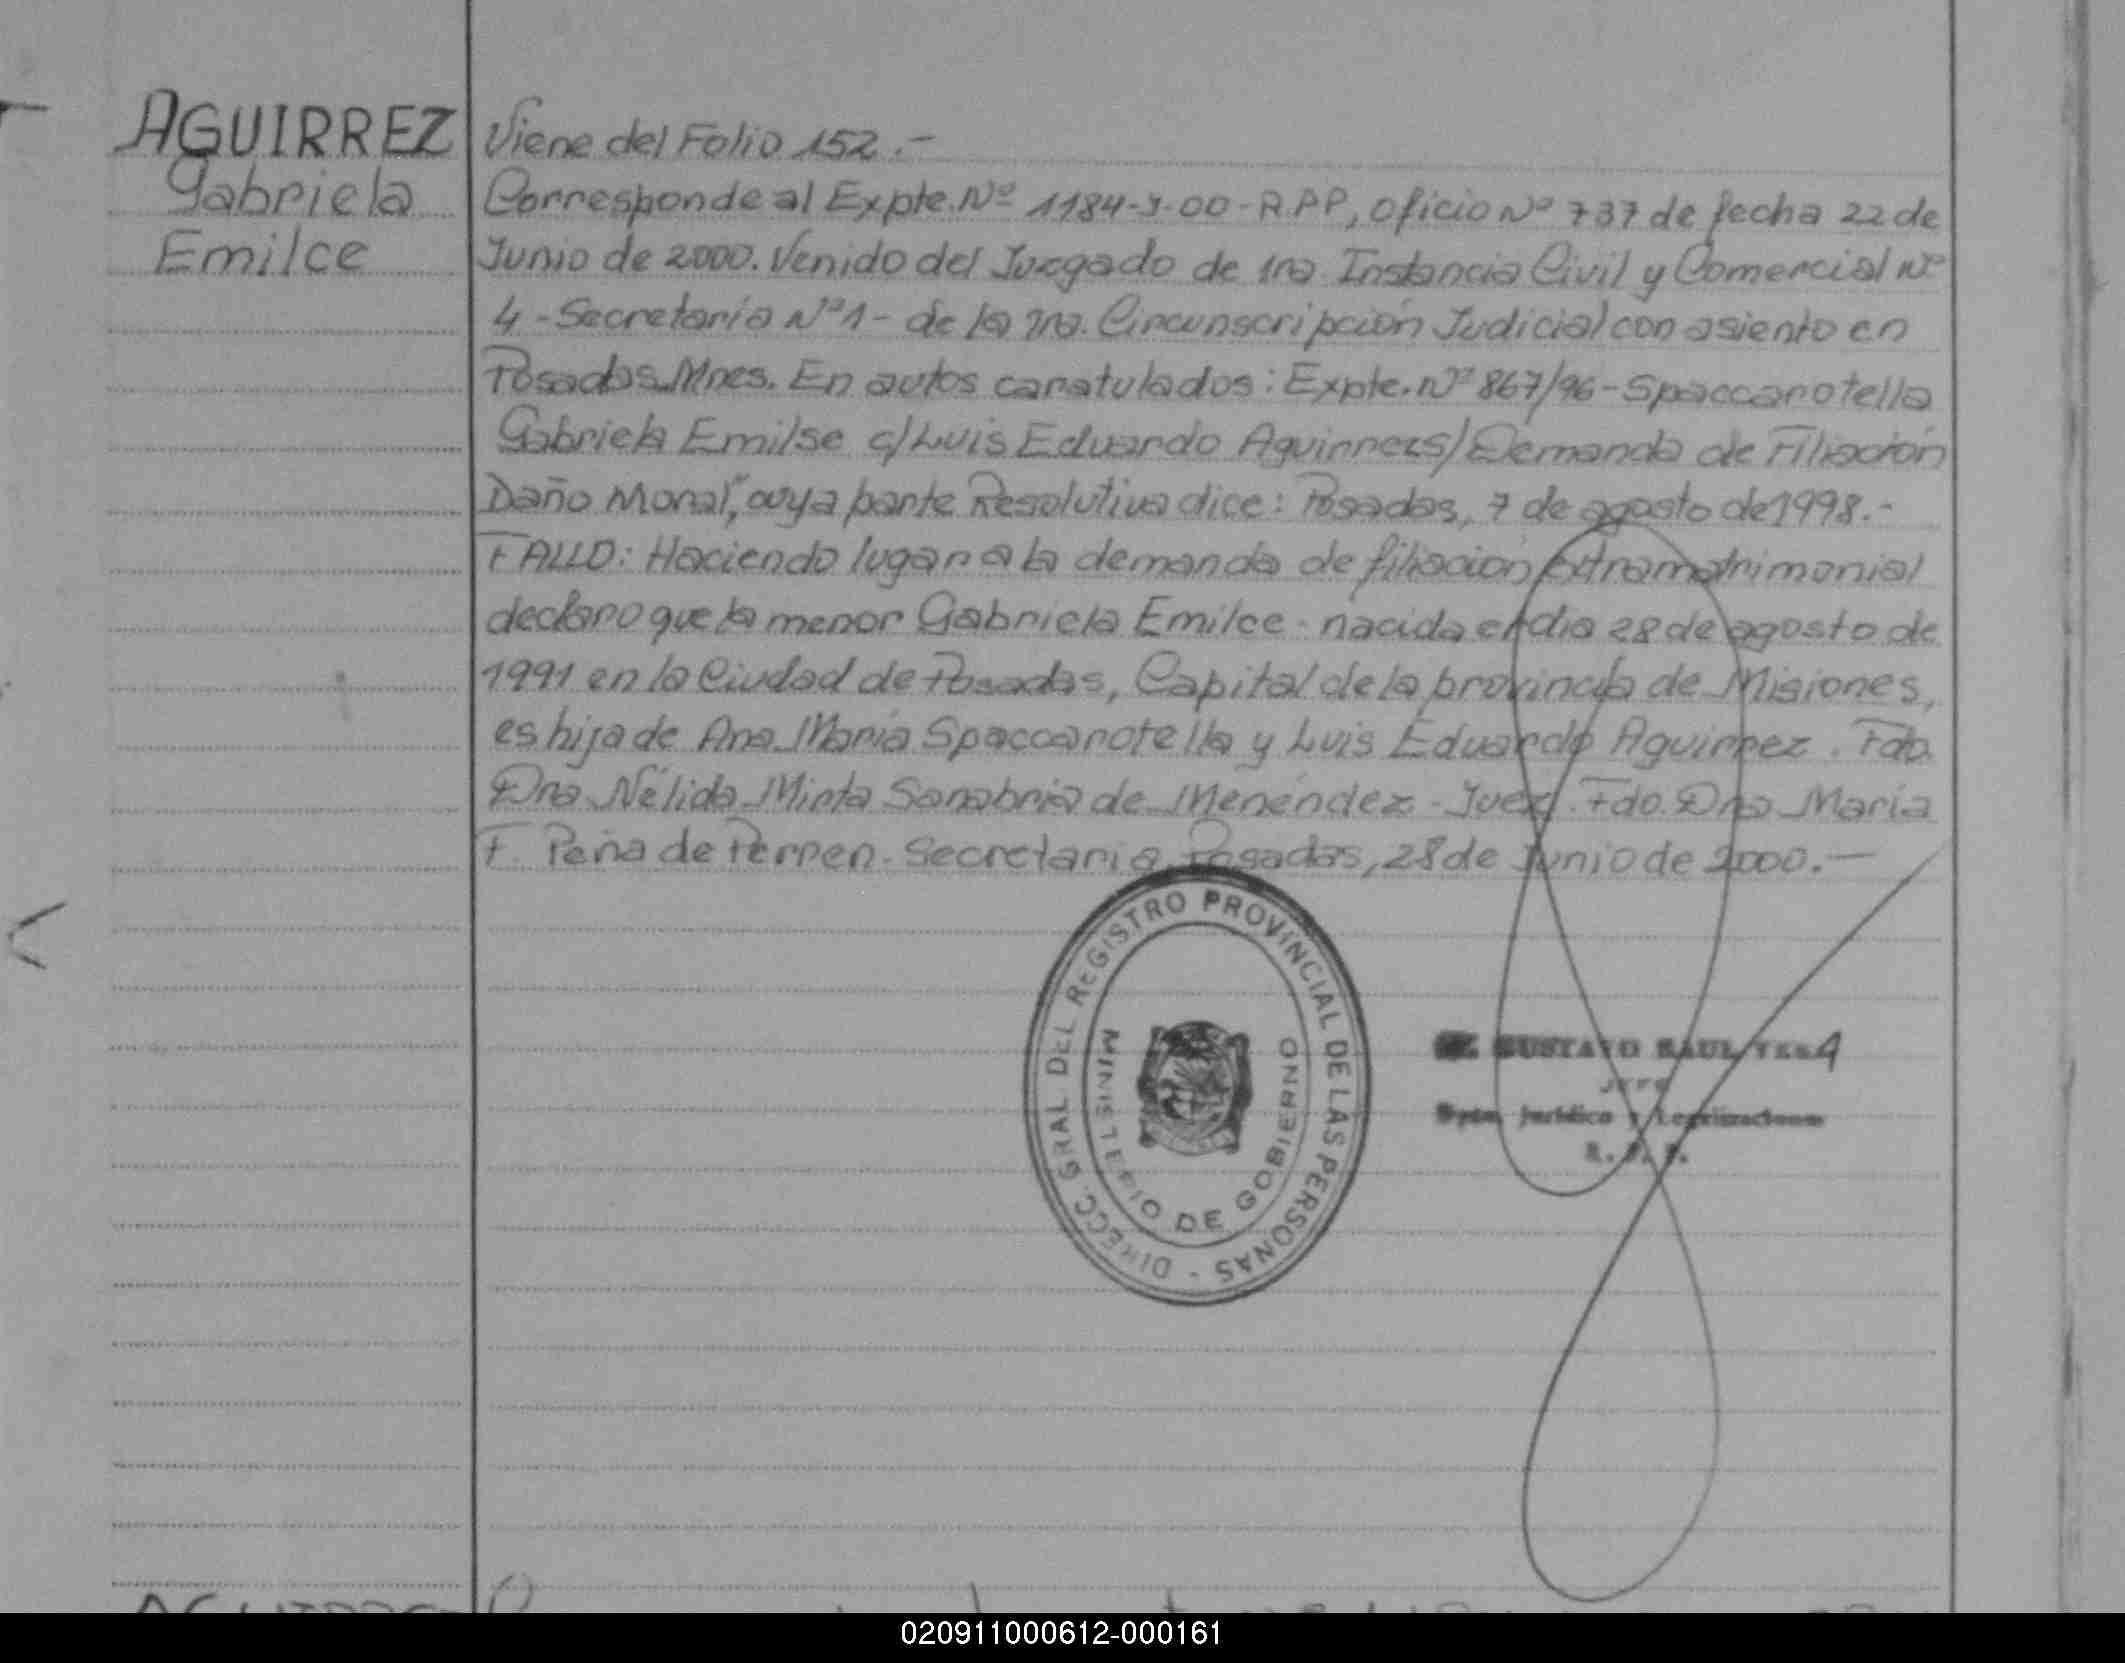 AGUIRREZ
Gabriela
Emilce
Viene del Folio 152.-
Corresponde al Expte. Nº 1184-J-00-R.P.P, Oficio Nº 737 de fecha 22 de
Junio de 2000. Venido del Juzgado de 1ra Instancia Civil y Comercial Nº
4 - Secretaría Nº 1 - de la 1ra. Circunscripción Judicial con asiento en
Posadas Mnes. En autos caratulados: Expte. Nº 867/96 - Spaccarotella
Gabriela Emilse c/ Luis Eduardo Aguirrez s/ Demanda de Filiación
Daño Moral", cuya parte Resolutiva dice: Posadas, 7 de agosto de 1998.-
FALLO: Haciendo lugar a la demanda de filiación extramatrimonial
declaro que la menor Gabriela Emilce - nacida el dia 28 de agosto de
1991 en la Ciudad de Posadas, Capital de la provincia de Misiones,
es hija de Ana María Spaccarotella y Luis Eduardo Aguirrez. Fdo.
Dra Nélida Mirta Sanabria de Menéndez - Juez. Fdo. Dra María
F. Peña de Perren - Secretaria. Posadas, 28 de Junio de 2000.-
DIRECC. GRAL DEL REGISTRO PROVINCIAL DE LAS PERSONAS -
MINISTERIO DE GOBIERNO
GUSTAVO RAUL VERA
JEFE
Dpto. Jurídico y Legalizaciones
R. P. P.
020911000612-000161